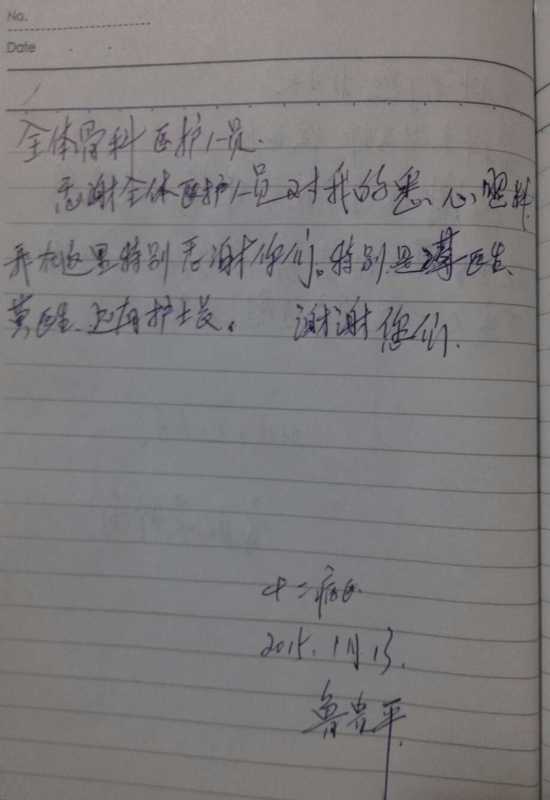 No.
Date
全体骨科医护人员.
感谢全体医护人员对我的悉心照料
我在这里特别感谢你们。特别是 医生、
黄医生、还有护士长。 谢谢您们.
十二病区
2015.1月13.
鲁贵平